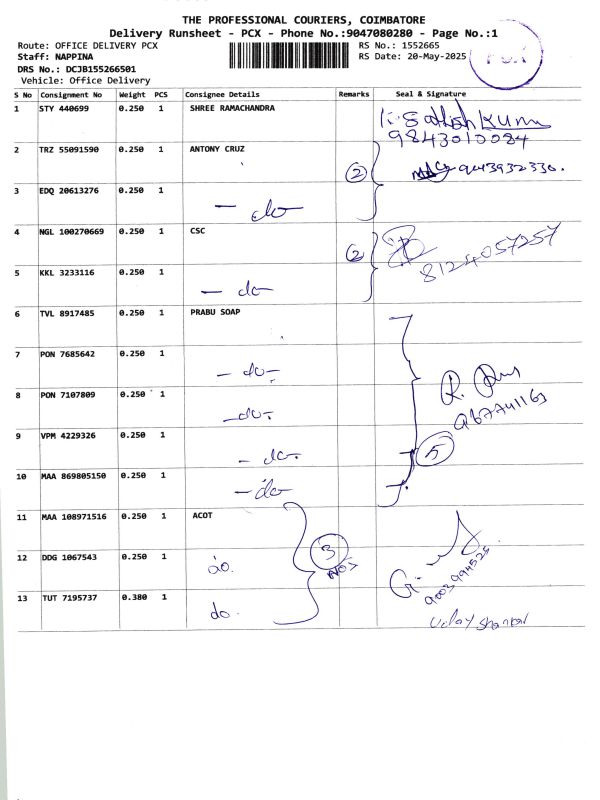 THE PROFESSIONAL COURIERS, COIMBATORE
Delivery Runsheet - PCX - Phone No.:9047080280 - Page No.:1
Route: OFFICE DELIVERY PCX RS No.: 1552665
Staff: NAPPINA RS Date: 20-May-2025
DRS No.: DCJB155266501
Vehicle: Office Delivery
PCX
S No Consignment No Weight PCS Consignee Details Remarks Seal & Signature
1 STY 440699 0.250 1 SHREE RAMACHANDRA K. Sathish Kumar
9843010084
2 TRZ 55091590 0.250 1 ANTONY CRUZ 2
3 EDQ 20613276 0.250 1 - do -
4 NGL 100270669 0.250 1 CSC 2 8124057257
5 KKL 3233116 0.250 1 - do -
6 TVL 8917485 0.250 1 PRABU SOAP
7 PON 7685642 0.250 1 - do -
8 PON 7107809 0.250 1 - do -
9 VPM 4229326 0.250 1 - do - 5
10 MAA 869805150 0.250 1 - do -
11 MAA 108971516 0.250 1 ACOT
12 DDG 1067543 0.250 1 do. 3 NOS
13 TUT 7195737 0.380 1 do.
Uday Shankar